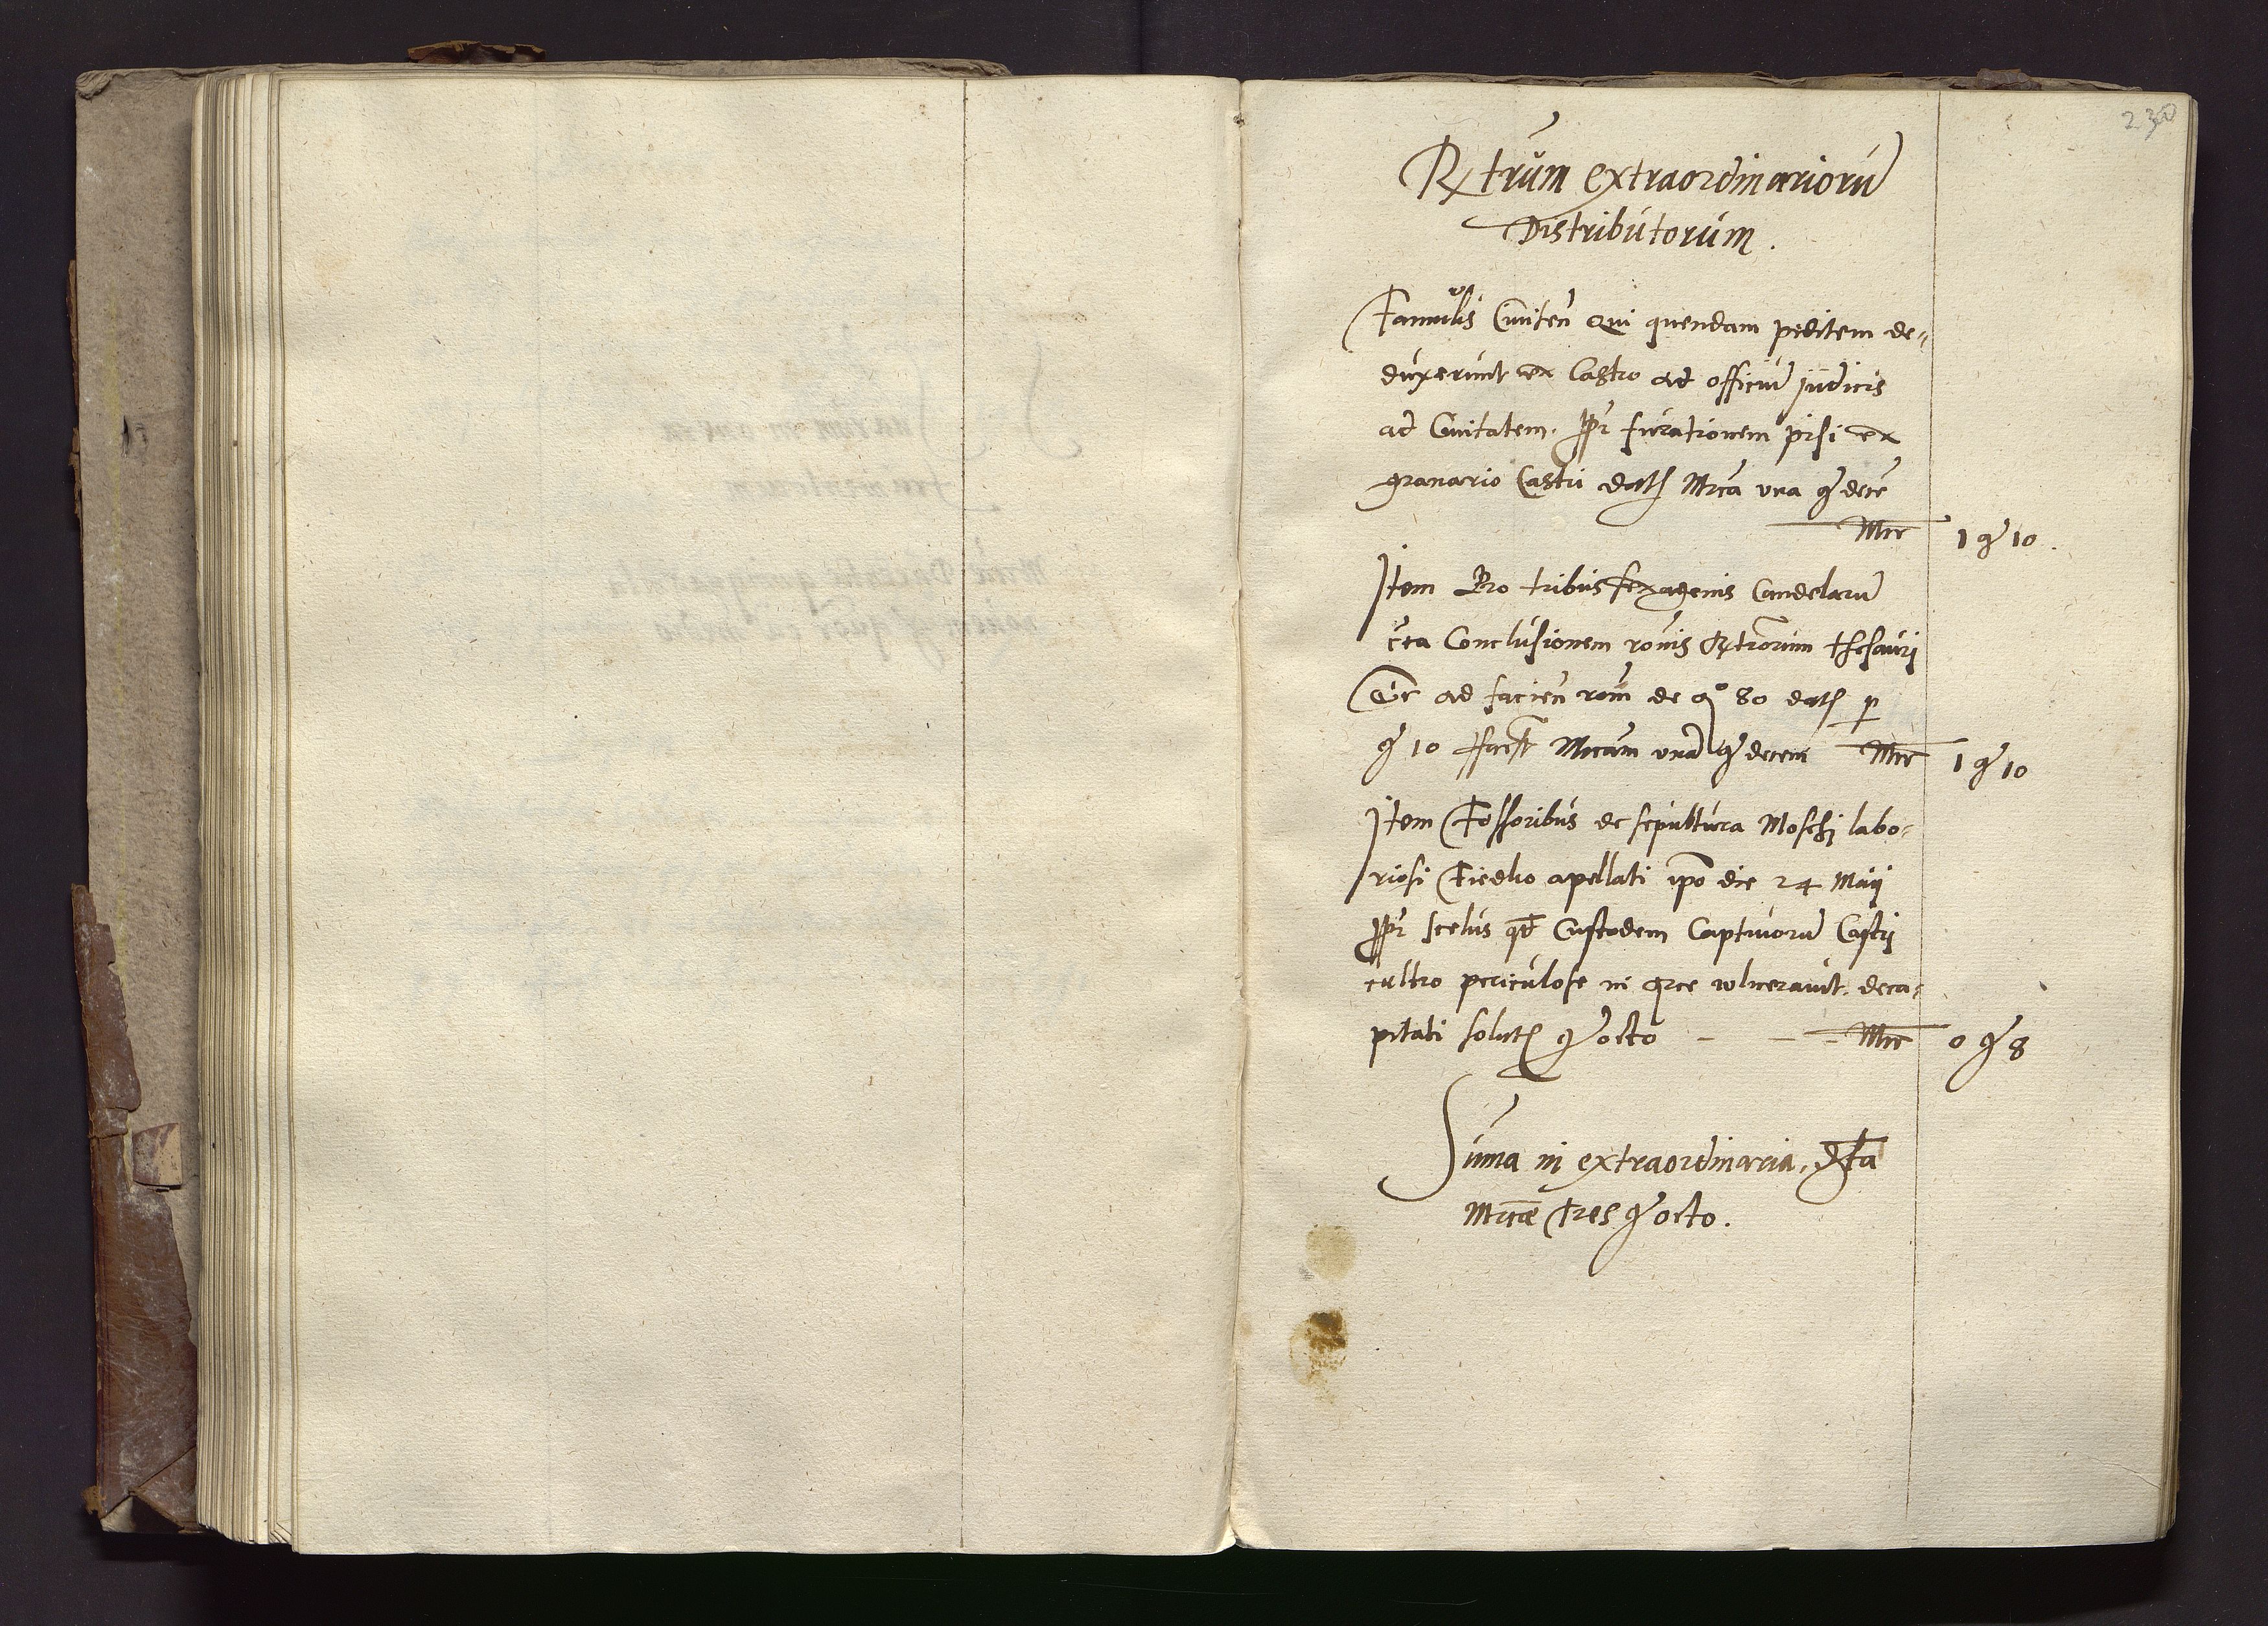 230
Rtrum extraordinarioru
Distributorum.
Famulis Civiten qui quendam peditem de-
duxerunt ex Castro ad officiu judicis
ad Civitatem. ppr furationem pisi ex
granario Castri dat Mrca una g dece
Mrc 1 g 10.
Item Pro tribus sexagenis Candelaru
cca Conclusionem ronis Rtrorum thesauri
ad facien rom de a° 80 dat p
g 10 Mrcam una g decem Mrc 1 g 10
Item Fossoribus de sepultura Moschi labo-
riosi Fiedko apellati ipo die 24 Maij
ppr scelus qd Custodem Captivoru Castri
cultro periculose in arce vulneravit, deca-
pitati solut g octo - - - Mrc 0 g 8
Suma in extraordinaria, dta
Mrcae Tres g octo.